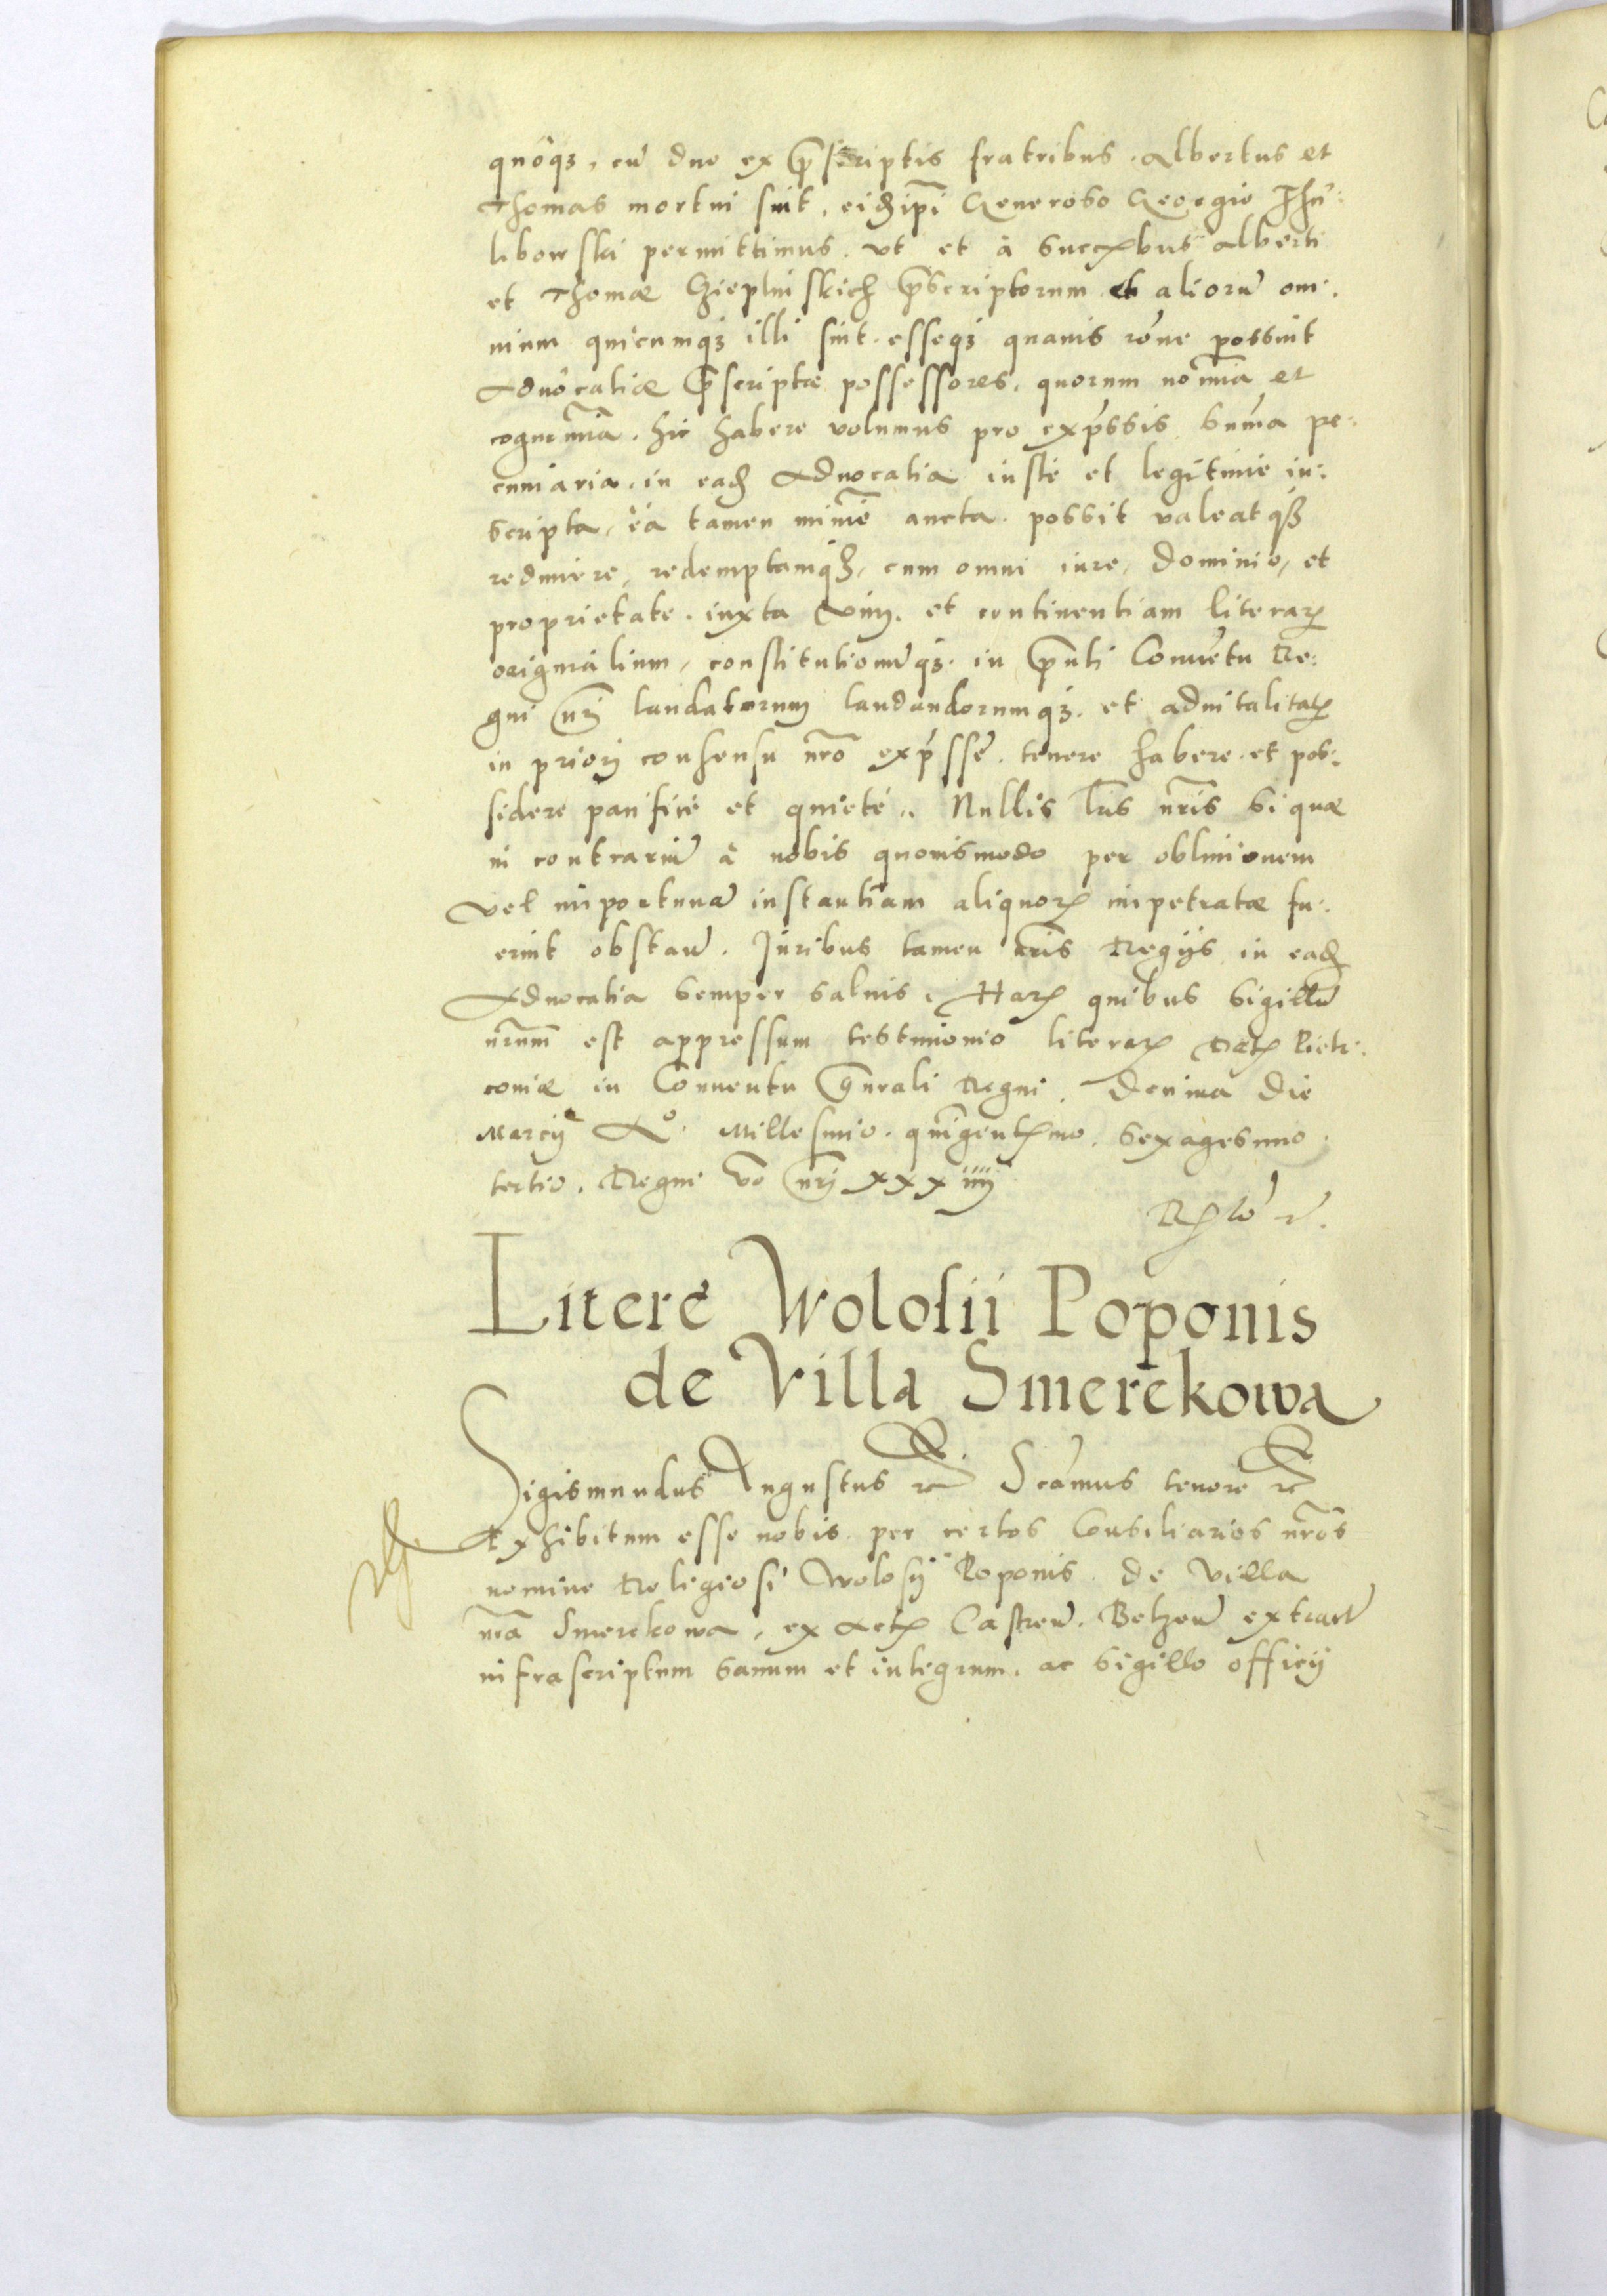 quoq₃, cu͂ duo ex p̱scriptis fratribus. Albertus et
Thomas mortui sint, eidēipi Generoso Georgio Chu:
libowski permittimus. Vt et à succ̄bus Alberti
et Thomæ Giepluiskich p̱scriptorum et alioru͂ om:
nium quicumq₃ illi sint. esseq₃ quauis rōne possint
Aduocatiæ p̱scriptæ possessores, quorum noīa et
cognomīa. hic habere volumus pro exp̄ssis suma pe:
cuniaria, in eadē Aduocatia iuste et legitime in:
scripta, eà tamen minimē aucta. possit valeatq₃
redimere, redemptamq₃, cum omni iure, Dominio, et
proprietate. iuxta vim. et continentiam literarꝝ
originalium, constitutionūq₃. in p̄nti Conuētu Re:
gni nr̄i laudatarum laudandorumq₃. et aduitalitatꝭ
in priori consensu nr̄o exp̄sse. tenere habere. et pos:
sidere pacificè et quietè. Nullis lr̄is nr̄is si quæ
in contrariu͂ à nobis quouismodo per obliuionem
vel importuna͂ instantiam aliquorꝝ impetratæ fu:
erint obstan̄. Juribus tamen nr̄is Regijs in eadē
Aduocatia semper saluis. Harꝝ quibus sigillu͂
nr̄um est appressum testimonio literarꝝ Datꝭ Pietr:
couiæ in Conuentu Gn̄rali Regni. Decima Die
Marcij Aº. Millesimo. quingentꝭmo. sexagesimo
tertio. Regni vō nr̄i xxxiiii
Litere Wolosii Poponis
de Villa Smerekowa
Sigismundus Augustus rc̄ Scāmus tenore rc̄
Exhibitum esse nobis per certos Consiliarios nr̄os
nomine Religiosi Wolosij Poponis de villa
nr̄a Smerekowa, ex actꝭ Castren̄. Belzen̄ extractū
infrascriptum sanum et integrum. ac sigillo officij